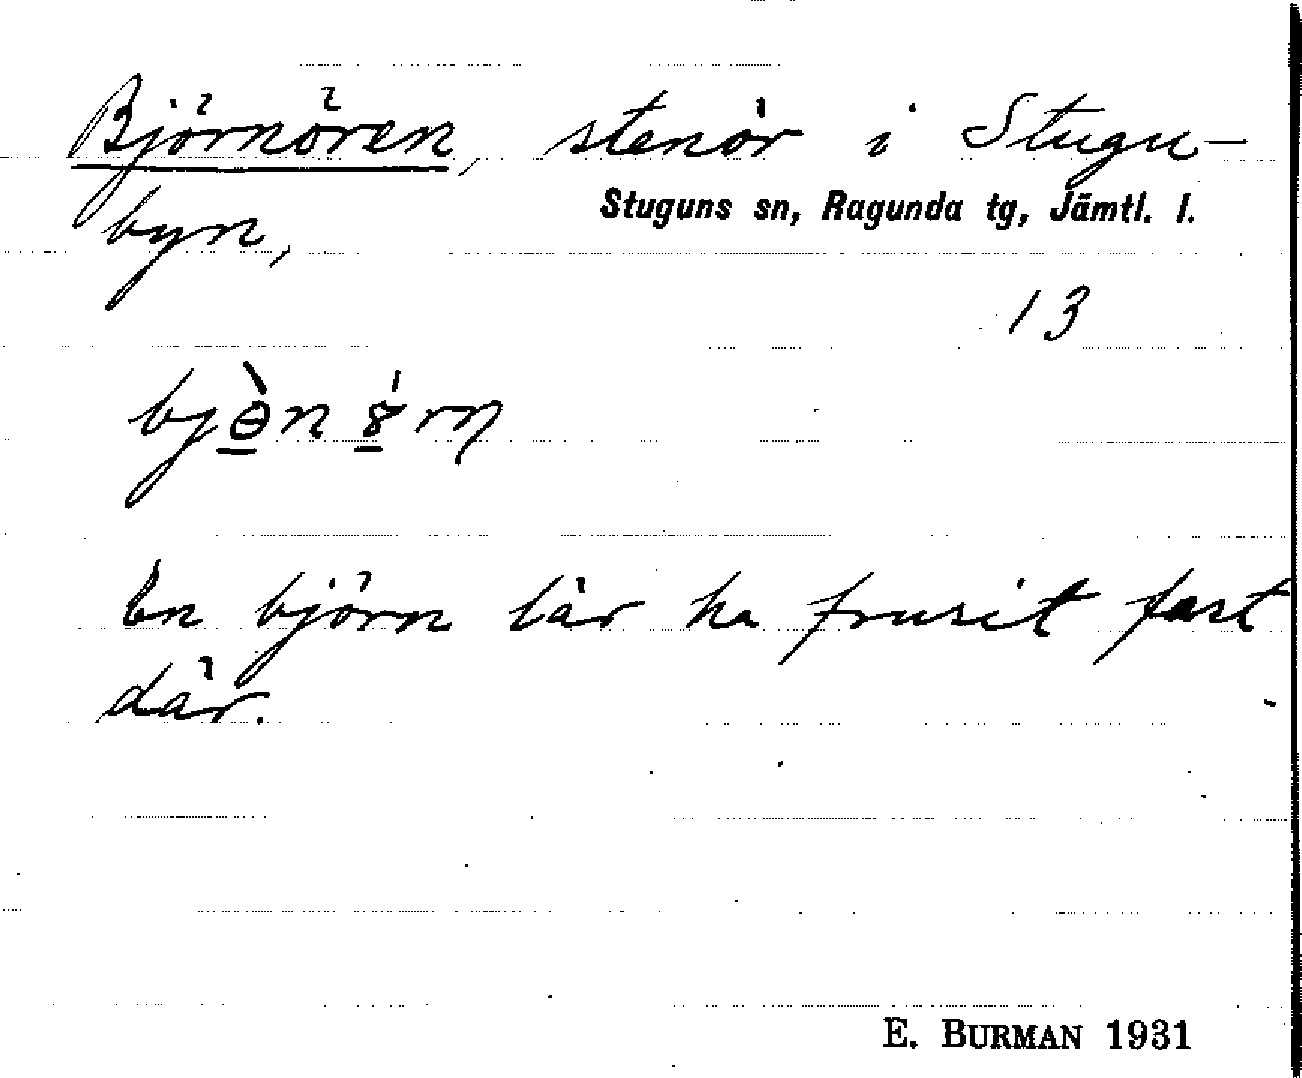 Björnören, stenör i Stugu-
Stuguns sn, Ragunda tg, Jämtl. l.
byn,
13
En björn lär ha frusit fast
där.
E. BURMAN 1931